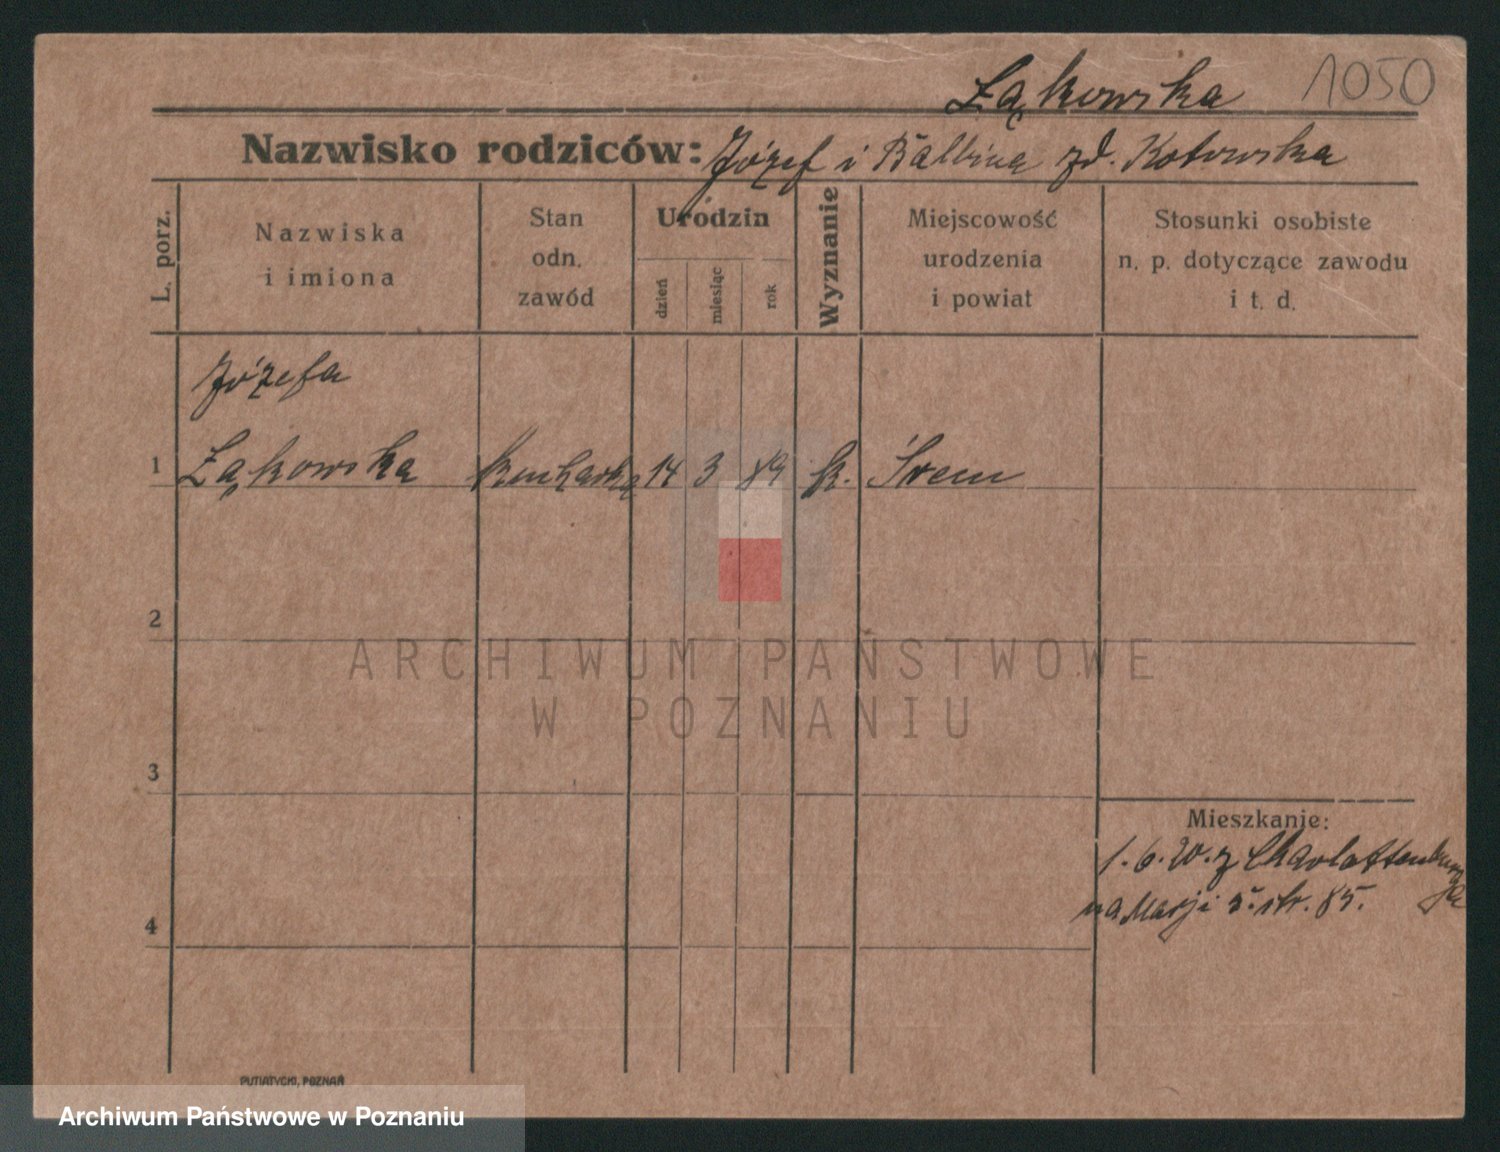 Łąkowska 1050
Nazwisko rodziców: Józef i Balbina zd. Kotowska
L. porz.
Nazwiska
i imiona
Stan
odn.
zawód
Urodzin
dzień
miesiąc
rok
Wyznanie
Miejscowość
urodzenia
i powiat
Stosunki osobiste
n. p. dotyczące zawodu
i t. d.
Józefa
1 Łąkowska kucharka 14 3 89 k. Śrem
2
ARCHIWUM PAŃSTWOWE
W POZNANIU
3
Mieszkanie:
1. 6. 20. z Charlottenburga
na Marji str. 85.
4
PUTIATYCKI, POZNAŃ
Archiwum Państwowe w Poznaniu